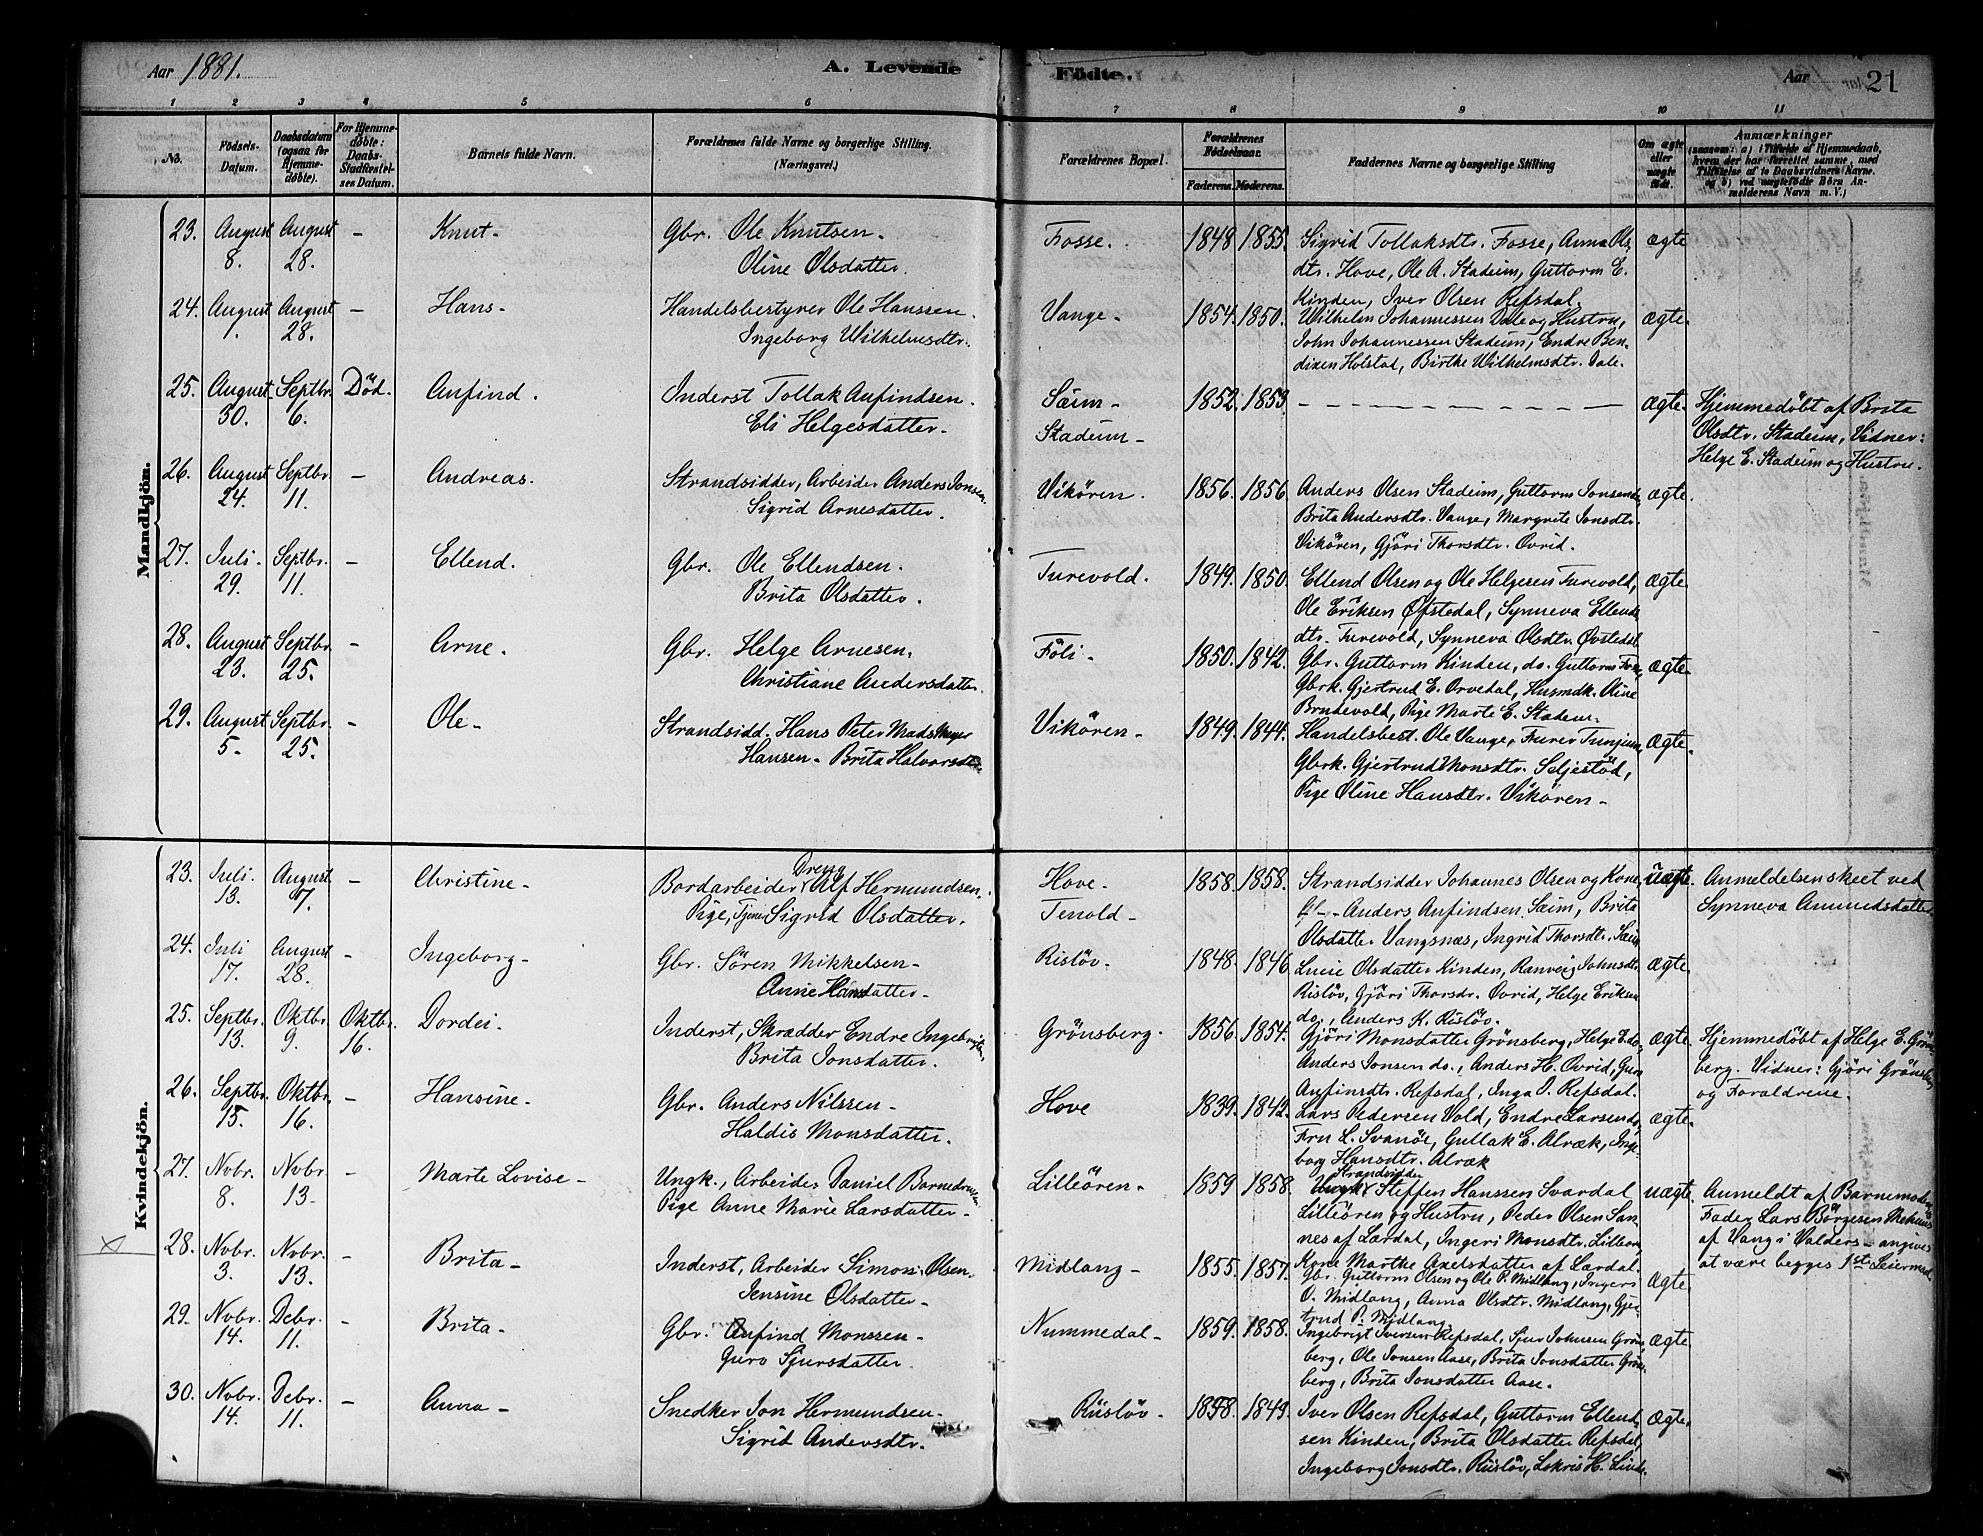 Aar 1881.
A. Levende
Födte.
Aar
21
1 2 3 4 5 6 7 8 9 10 11
No.
Födsels-Datum.
Daabsdatum (ogsaa for Hjemmedöbte).
For Hjemmedöbte: Daabs-Stadfæstelses Datum.
Barnets fulde Navn.
Forældrenes fulde Navne og borgerlige Stilling. (Næringsvei.)
Forældrenes Bopæl.
Forældrenes Födselsaar.
Faderens. Moderens.
Faddernes Navne og borgerlige Stilling
Om ægte eller uægte födt.
Anmærkninger
(saasom: a) i Tilfælde af Hjemmedaab, hvem der har forrettet samme, med Tilföielse af to Daabsvidners Navne. og b) ved uægtefödte Börn Anmelderens Navn m. V.)
Mandkjön.
23. August 8. August 28. - Knut. Gbr. Ole Knutsen. Fosse. 1848 1855. Sigrid Tollaksdtr. Fosse, Anna Ols- ægte
Oline Olsdatter. dtr. Hove, Ole A. Stadeim, Guttorm E.
Kinden, Iver Olsen Refsdal.
24. August 1. August 28. - Hans. Handelsbestyrer Ole Hanssen. Vange. 1854. 1850. Wilhelm Johannessen Dale og Hustru, ægte.
Ingeborg Wilhelmsdtr. John Johannessen Stadeim, Endre Ben-
dixen Holstad, Birthe Wilhelmsdtr. Dale.
25. August 30. Septbr. 6. Död. Anfind. Inderst Tollak Anfindsen. Sæim - 1852. 1853. ægte. Hjemmedöbt af Brita
Eli Helgesdatter. Stadeim - Olsdtr. Stadeim, Vidner:
Helge E. Stadeim og Hustru.
26. August 24. Septbr. 11. - Andreas. Strandsidder, Arbeider Anders Jonsen. Vikören. 1856. 1856. Anders Olsen Stadeim, Guttorm Jonsen do, ægte.
Sigrid Arnesdatter. Brita Andersdtr. Vange, Margrete Jonsdtr.
Vikören, Gjöri Thorsdtr. Ovrid.
27. Juli 29. Septbr. 11. - Ellend. Gbr. Ole Ellendsen. Turevold. 1849. 1850. Ellend Olsen og Ole Helgesen Turevold, ægte.
Brita Olsdatter. Ole Eriksen Øfstedal, Synneva Ellends
dtr. Turevold, Synneva Olsdtr. Øvstedal
28. August 23. Septbr. 25. - Arne. Gbr. Helge Arnesen. Föli - 1850. 1842. Gbr. Guttorm Kinden, do. Guttorm ægte.
Christiane Andersdatter. Gbrk. Gjertrud E. Orvedal, Husmdk. Oline
Brudevold, Pige Marte E. Stadem.
29. August 5. Septbr. 25. - Ole - Strandsidd. Hans Peter Mads Vikören - 1849. 1844. Handelsbest. Ole Vange, Furer Tunjum, ægte.
Hansen - Brita Halvorsdtr. Gbrk. Gjertrud Monsdtr. Seljestöd,
Pige Oline Hansdtr. Vikören -
Kvindekjön.
23. Juli 13. August 7. - Christine - Bordarbeider Dreng Alf Hermundsen. Hove - 1858. 1858. Strandsidder Johannes Olsen og Kone, uægte. Anmeldelsen skeet ved
Pige, Tjener Sigrid Olsdatter. Tenold - Anders Anfindsen Sæim, Brita Synneva Amundsdatter.
Olsdatter Vangsnæs, Ingrid Thorsdtr. Sæim
24. Juli 17. August 28. - Ingeborg - Gbr. Sören Mikkelsen - Rislöv. 1848. 1846. Lucie Olsdatter Kinden, Ranveig Johnsdtr. ægte.
Anne Hansdatter - Rislöv, Gjöri Thorsdtr. Ovrid, Helge Eriksen
do., Anders K. Rislöv.
25. Septbr. 13. Oktbr. 9. Oktbr. 16. Dordei. Inderst, Skrædder Endre Ingebrigtsen Grönsberg. 1856. 1854. Gjöri Monsdatter Grönsberg, Helge E. do. ægte. Hjemmedöbt af Helge E. Gröns-
Brita Jonsdatter. Anders Jonsen do., Anders H. Ovrid, Guri berg. Vidner: Gjöri Grönsberg
Anfinsdtr. Refsdal, Inga O. Refsdal. og Forældrene.
26. Septbr. 15. Oktbr. 16. - Hansine. Gbr. Anders Nilssen - Hove 1839. 1842. Lars Pedersen Vold, Endre Larsen do, ægte.
Haldis Monsdatter. Fru L. Svanöe, Gullak E. Alræk, Inge-
borg Hansdtr. Alræk
27. Novbr. 8. Novbr. 13. - Marte Lovise - Ungk., Arbeider Daniel Lilleören - 1859 1858. Strandsidder Steffen Hanssen Svardal uægte. Anmeldt af Barnemoders
Pige Anne Marie Larsdatter - Lilleören og Hustru, Peder Olsen San- Fader Lars Börgesen
nes af Lærdal, Ingeri Monsdtr. Lilleör, af Vang i Valders - angives
Kone Marthe Axelsdatter af Lærdal. at være begges 1ste Leiermaal.
28. Novbr. 3. Novbr. 13. - Brita - Inderst, Arbeider Simon Olsen. Midlang - 1855. 1857. Gbr. Guttorm Olsen og Ole P. Midlang, Ingeri ægte.
Jensine Olsdatter - O. Midlang, Anna Olsdtr. Midlang, Gjer-
trud P. Midlang.
29. Novbr. 14. Debr. 11. - Brita - Gbr. Anfind Monssen - Nummedal - 1859. 1858. Ingebrigt Iversen Refsdal, Sjur Johnsen Gröns- ægte.
Guro Sjursdatter. berg, Ole Jonsen Aase, Brita Jonsdatter Gröns-
berg, Brita Jonsdatter Aase.
30. Novbr. 14. Debr. 11. - Anna - Snedker Jon Hermundsen - Riislöv - 1849. Iver Olsen Refsdal, Guttorm Ellend- ægte.
Sigrid Andersdtr. sen Kinden, Brita Olsdatter Refsdal,
Ingeborg Jonsdtr. Riislöv,